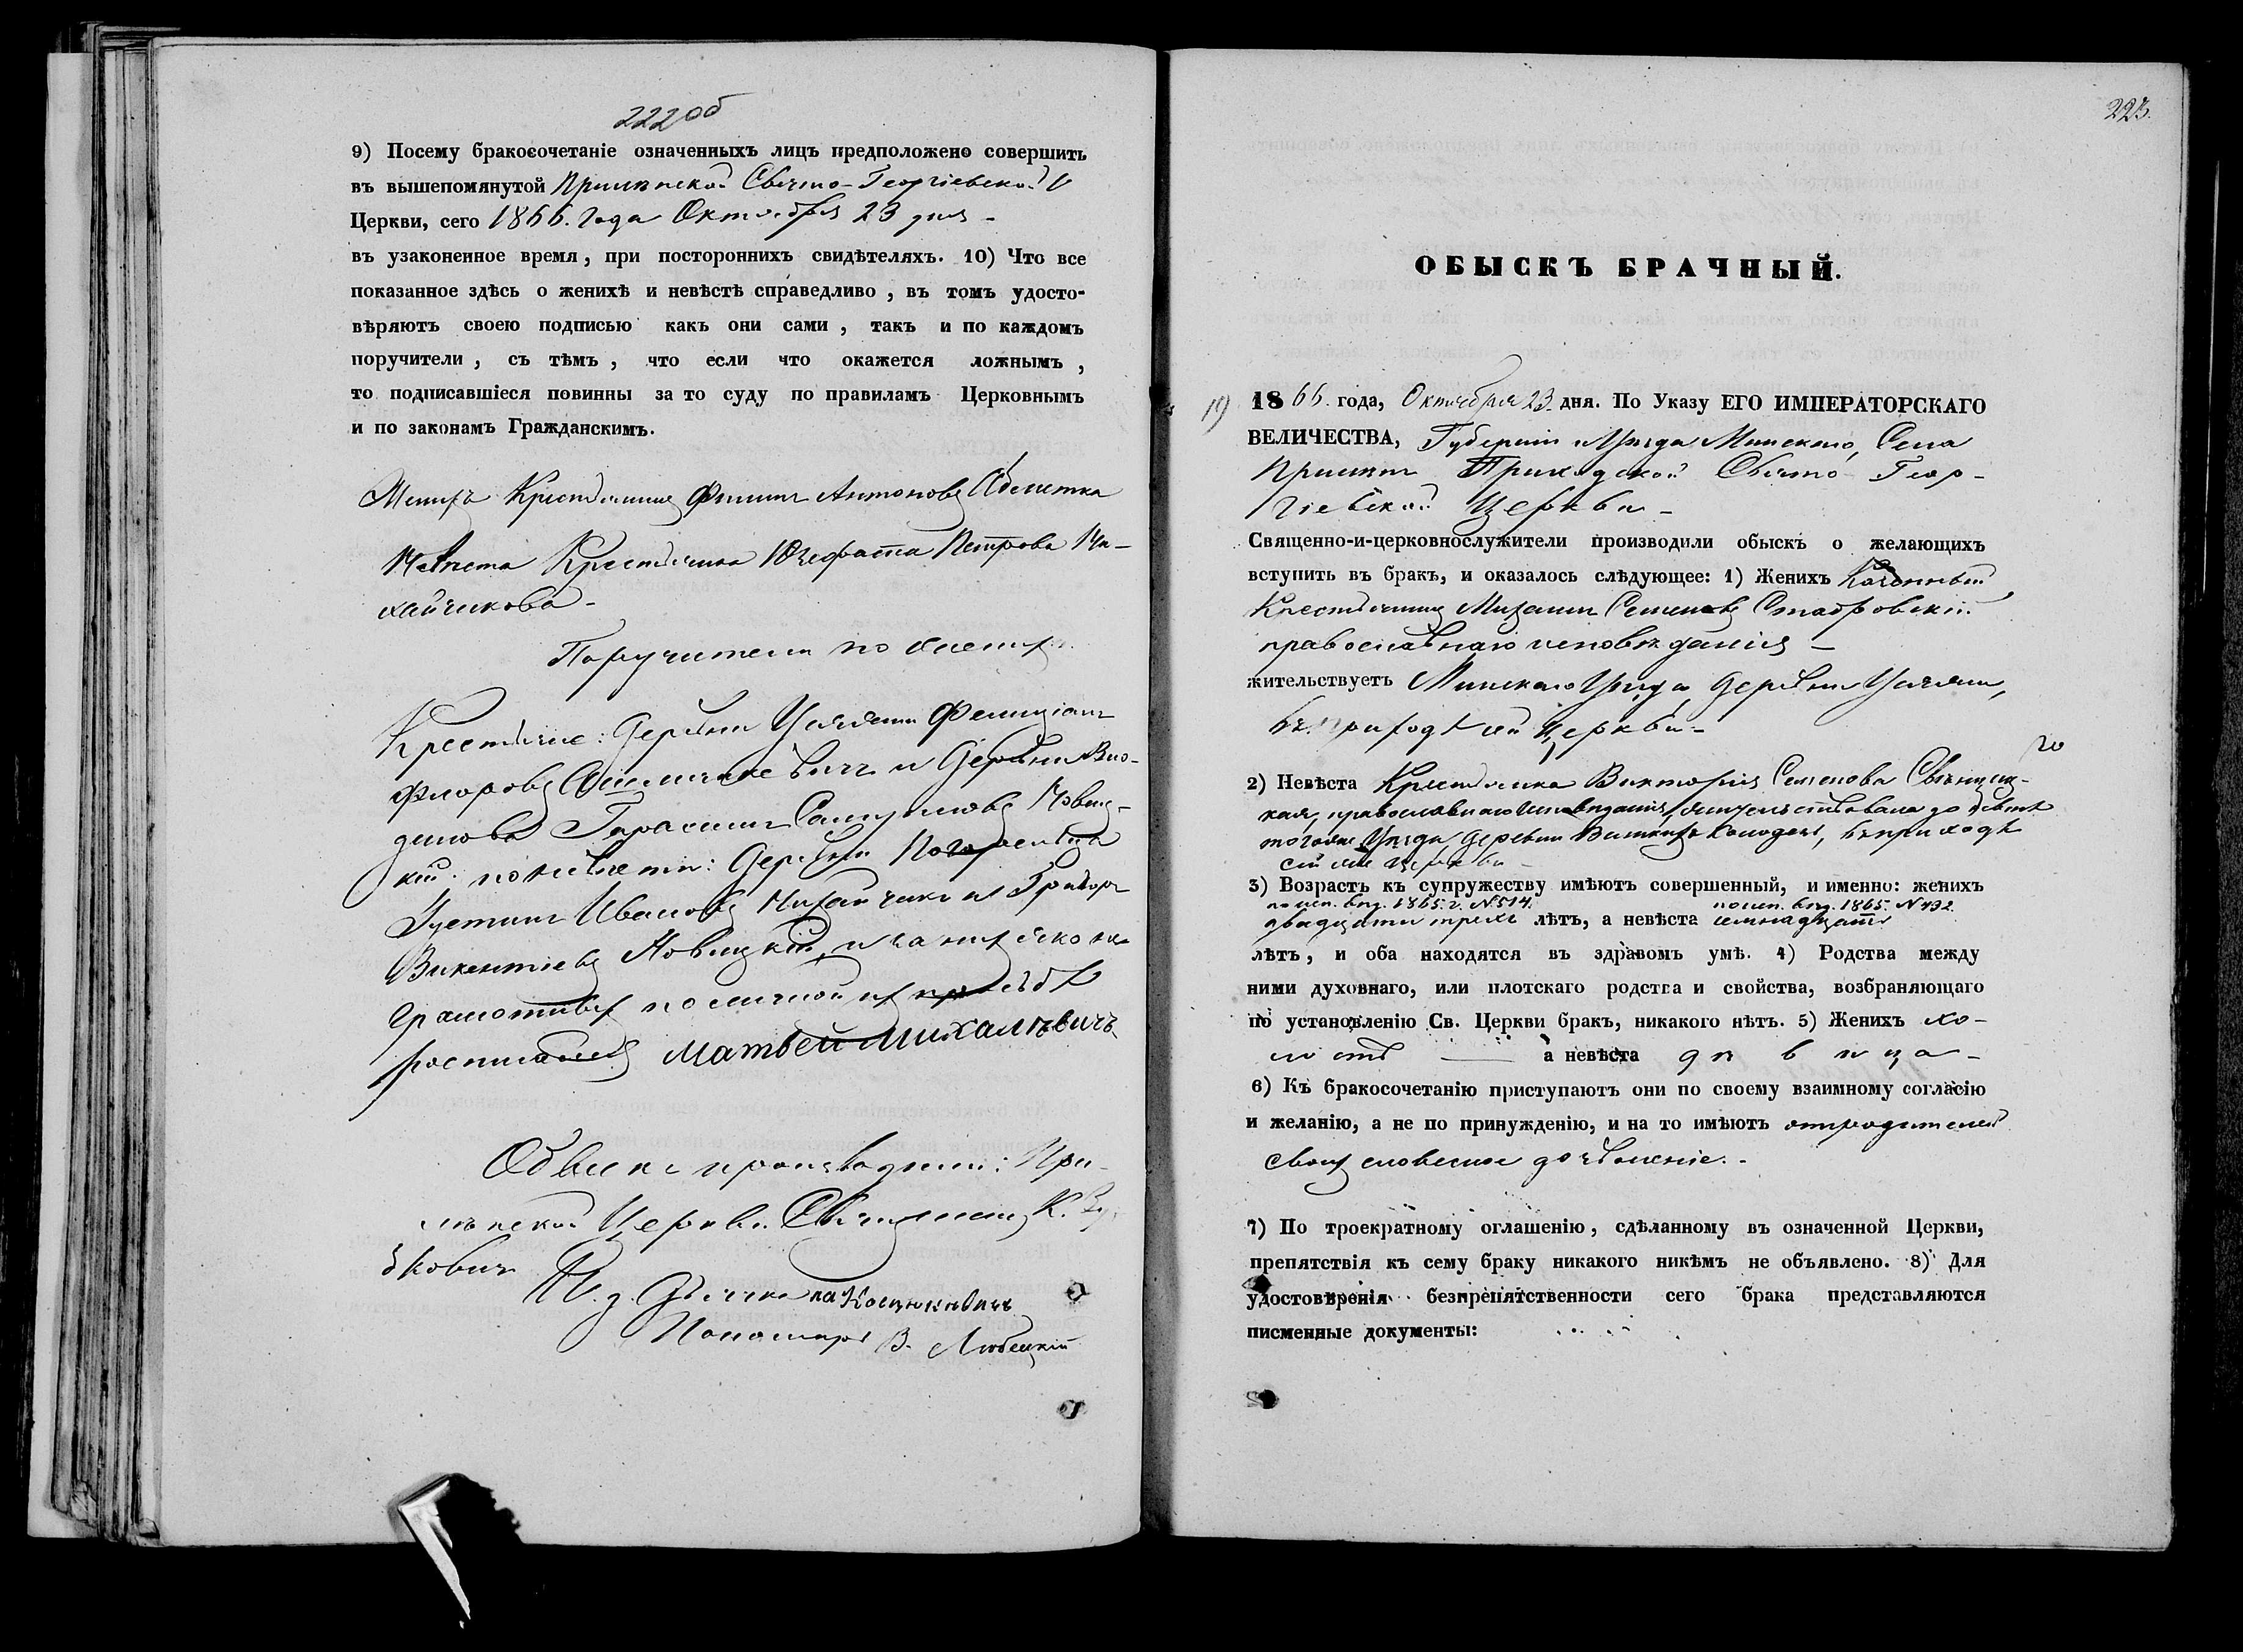 222 об
9) Посему бракосочетаніе означенныхъ лицъ предположено совершить
въ вышепомянутой Прилѣпской Свято-Георгіевской
Церкви, сего 1866. года Октября 23 дня -
въ узаконенное время, при постороннихъ свидѣтеляхъ. 10) Что все
показанное здѣсь о женихѣ и невѣстѣ справедливо, въ томъ удосто-
вѣряютъ своею подписью какъ они сами, такъ и по каждомъ
поручители, съ тѣмъ, что если что окажется ложнымъ,
то подписавшіеся повинны за то суду по правиламъ Церковнымъ
и по законамъ Гражданскимъ.
Женихъ Крестьянинъ Филипъ Антоновъ
Невѣста Крестьянка Юзефата Петрова Ми-
хайчикова -
Поручители по женихѣ
Крестьяне: деревни Усяжи Фелиціанъ
Флоровъ и деревни
Гарасимъ Самуиловъ Новиц-
кій. по невѣсте: деревни
Устинъ Ивановъ Михайчикъ и Григорій
Викентіевъ Новицкій, и за нихъ яко не-
грамотныхъ по личной ихъ прозьбѣ
росписался Матвей Михалкевичъ
Обыскъ производили: При-
лѣпской Церкви Священникъ К.
И. д. Дьячка
Пономарь В. Любецкій
223.
ОБЫСКЪ БРАЧНЫЙ.
19) 1866. года, Октября 23. дня. По Указу ЕГО ИМПЕРАТОРСКАГО
ВЕЛИЧЕСТВА, Губерніи и Уѣзда Минскаго, Села
Прилѣпъ Приходской Свято Геор-
гіевской Церкви -
Священно-и-церковнослужители производили обыскъ о желающихъ
вступить въ бракъ, и оказалось слѣдующее: 1) Женихъ Казенный
Крестьянинъ Михаилъ Семеновъ Ставровскій
православнаго исповѣданія -
жительствуетъ Минскаго Уѣзда, деревни Усяжи,
въ приходѣ сей Церкви -
2) Невѣста Крестьянка Викторія Семенова Свѣнциц-
кая, православнаго исповѣданія, жительствовала до невѣстѣ
того же Уѣзда деревни Колодези, въ приходѣ
сей же Церкви -
3) Возрастъ къ супружеству имѣютъ совершенный, и именно: женихъ
по исп. вѣд. 1865. г. № 514. по исп. вѣд. 1865. № 492
двадцати трехъ лѣтъ, а невѣста семнадцати
лѣтъ, и оба находятся въ здравомъ умѣ. 4) Родства между
ними духовнаго, или плотскаго родства и свойства, возбраняющаго
по установленію Св. Церкви бракъ, никакого нѣтъ. 5) Женихъ хо-
лостъ а невѣста дѣвица -
6) Къ бракосочетанію приступаютъ они по своему взаимному согласію
и желанію, а не по принужденію, и на то имѣютъ отъ родителей
своихъ словесное дозволеніе. -
7) По троекратному оглашенію, сдѣланному въ означенной Церкви,
препятствія къ сему браку никакого никѣмъ не объявлено. 8) Для
удостовѣренія безпрепятственности сего брака представляются
писменные документы: